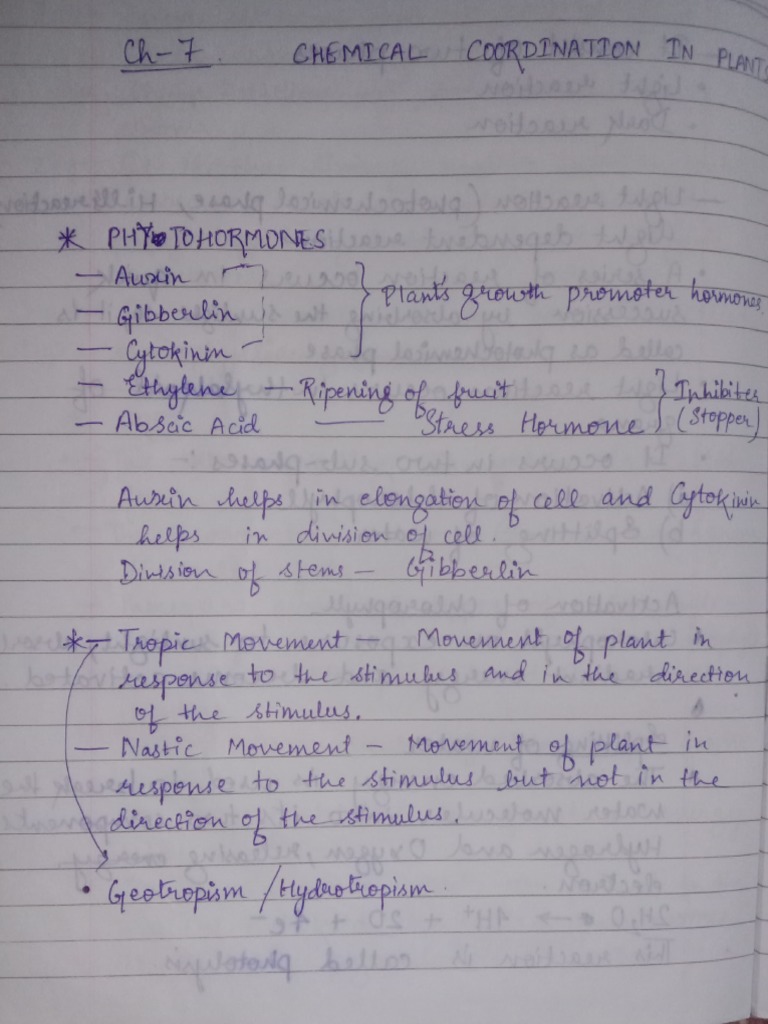 Ch-7. CHEMICAL COORDINATION IN PLANTS
* PHYTOHORMONES
— Auxin
— Gibberlin
— Cytokinin
} Plant's growth promoter hormones.
— Ethylene — Ripening of fruit
— Abscic Acid — Stress Hormone
} Inhibiter
(Stopper)
Auxin helps in elongation of cell and Cytokinin
helps in division of cell.
Division of stems — Gibberlin
* — Tropic Movement — Movement of plant in
response to the stimulus and in the direction
of the stimulus.
— Nastic Movement — Movement of plant in
response to the stimulus but not in the
direction of the stimulus.
• Geotropism / Hydrotropism.